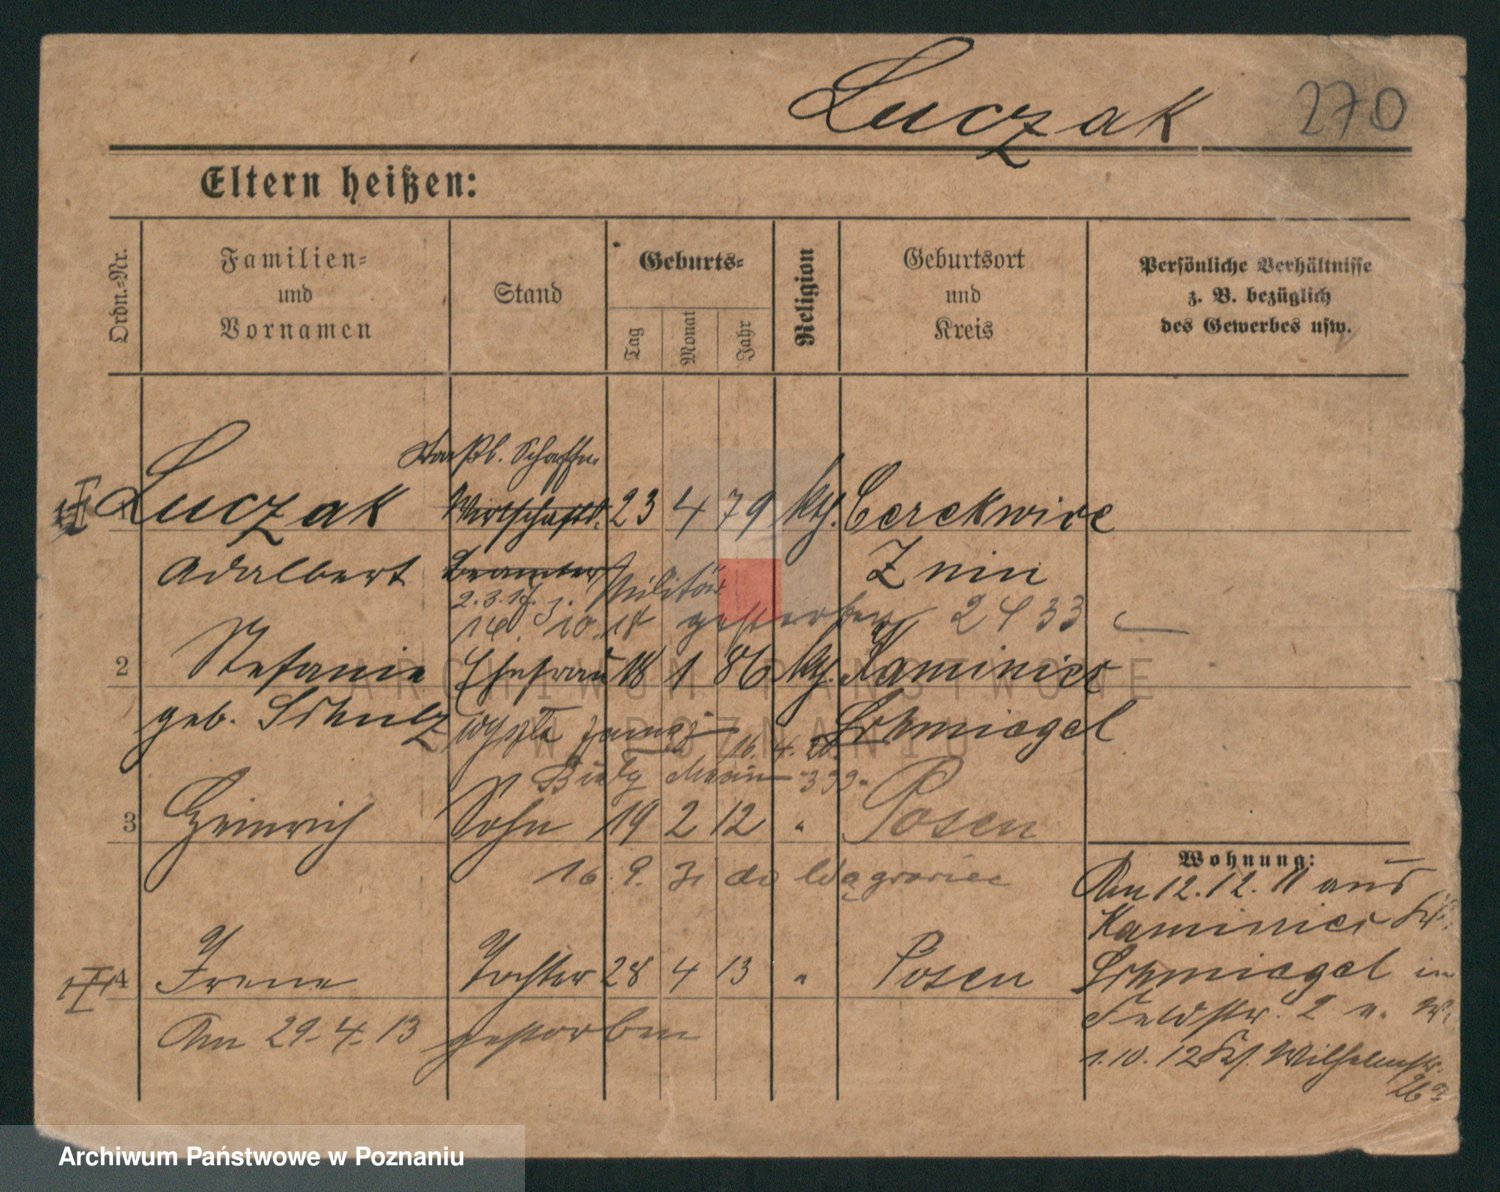 Luczak 270
Eltern heißen:
Ordn.-Nr.
Familien-
und
Vornamen
Stand
Geburts-
Tag
Monat
Jahr
Religion
Geburtsort
und
Kreis
Persönliche Verhältnisse
z. B. bezüglich
des Gewerbes usw.
Straßb. Schaffn.
1 Luczak Wirtschafts. 23 4 79 kath. Cerekwice
Adalbert Beamter Militär Znin
2.3.17.
14. 10. 18 gestorben 2433
2 Stefanie Ehefrau 18 1 86 kath. Kaminiec
geb. Schulz Schmiegel
16. 4.
3 Heinrich Sohn 19 2 12 " Posen
16. 9. 31 do Wągrowiec
Wohnung:
Am 12.12.11 aus
Kaminiec Kr.
Schmiegel in
Feldstr. 2 v. W.
1.10.12 Wilhelmstr.
26
4 Irene Tochter 28 4 13 " Posen
Am 29.4.13 gestorben
ARCHIWUM PAŃSTWOWE
W POZNANIU
Archiwum Państwowe w Poznaniu